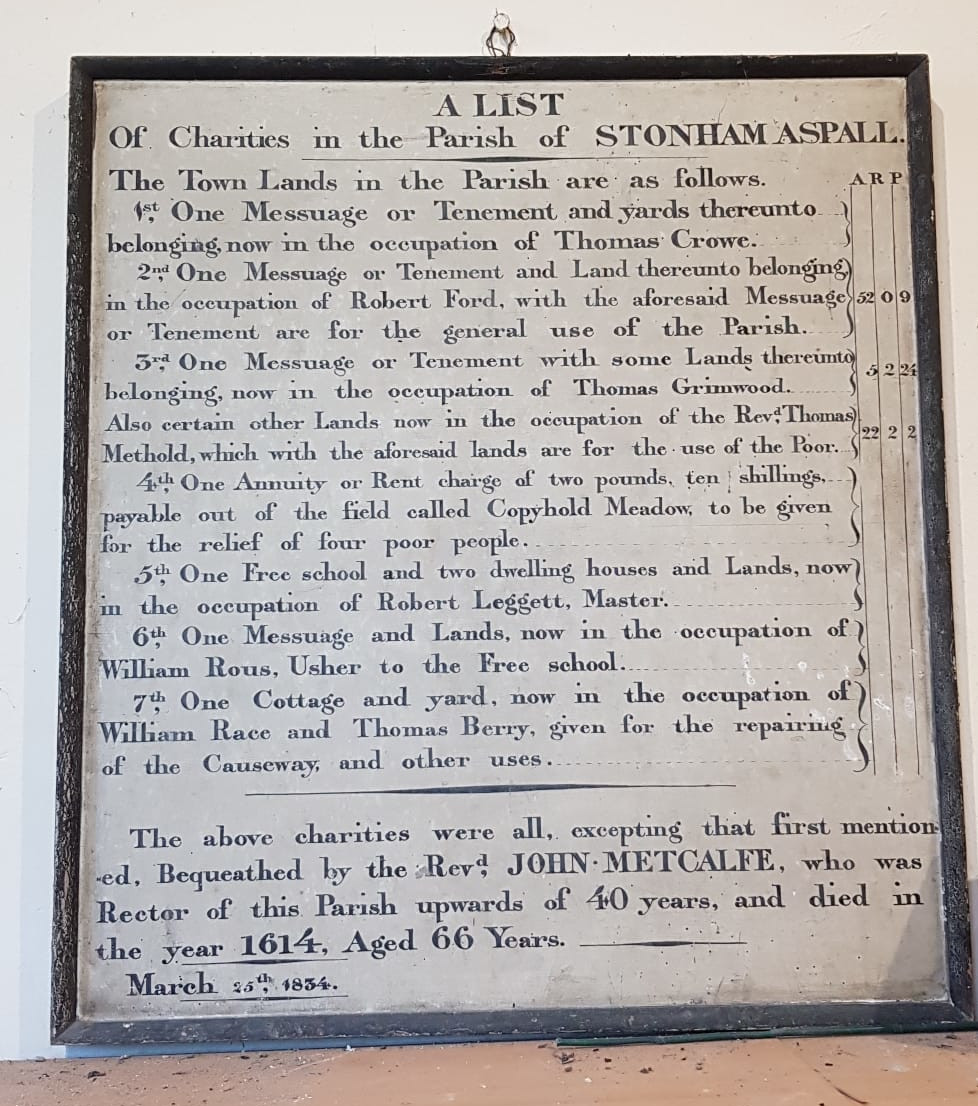 A LIST
Of Charities in the Parish of STONHAM ASPALL.
The Town Lands in the Parish are as follows. A R P
1st, One Messuage or Tenement and yards thereunto
belonging, now in the occupation of Thomas Crowe.
2nd, One Messuage or Tenement and Land thereunto belonging
in the occupation of Robert Ford, with the aforesaid Messuage 52 0 9
or Tenement are for the general use of the Parish.
3rd, One Messuage or Tenement with some Lands thereunto
belonging, now in the occupation of Thomas Grimwood. 5 2 24
Also certain other Lands now in the occupation of the Revd, Thomas
Methold, which with the aforesaid lands are for the use of the Poor. 22 2 2
4th, One Annuity or Rent charge of two pounds, ten shillings,
payable out of the field called Copyhold Meadow, to be given
for the relief of four poor people.
5th, One Free school and two dwelling houses and Lands, now
in the occupation of Robert Leggett, Master.
6th, One Messuage and Lands, now in the occupation of
William Rous, Usher to the Free school.
7th, One Cottage and yard, now in the occupation of
William Race and Thomas Berry, given for the repairing
of the Causeway, and other uses.
The above charities were all, excepting that first mention-
-ed, Bequeathed by the Revd, JOHN METCALFE, who was
Rector of this Parish upwards of 40 years, and died in
the year 1614, Aged 66 Years.
March 25th, 1834.